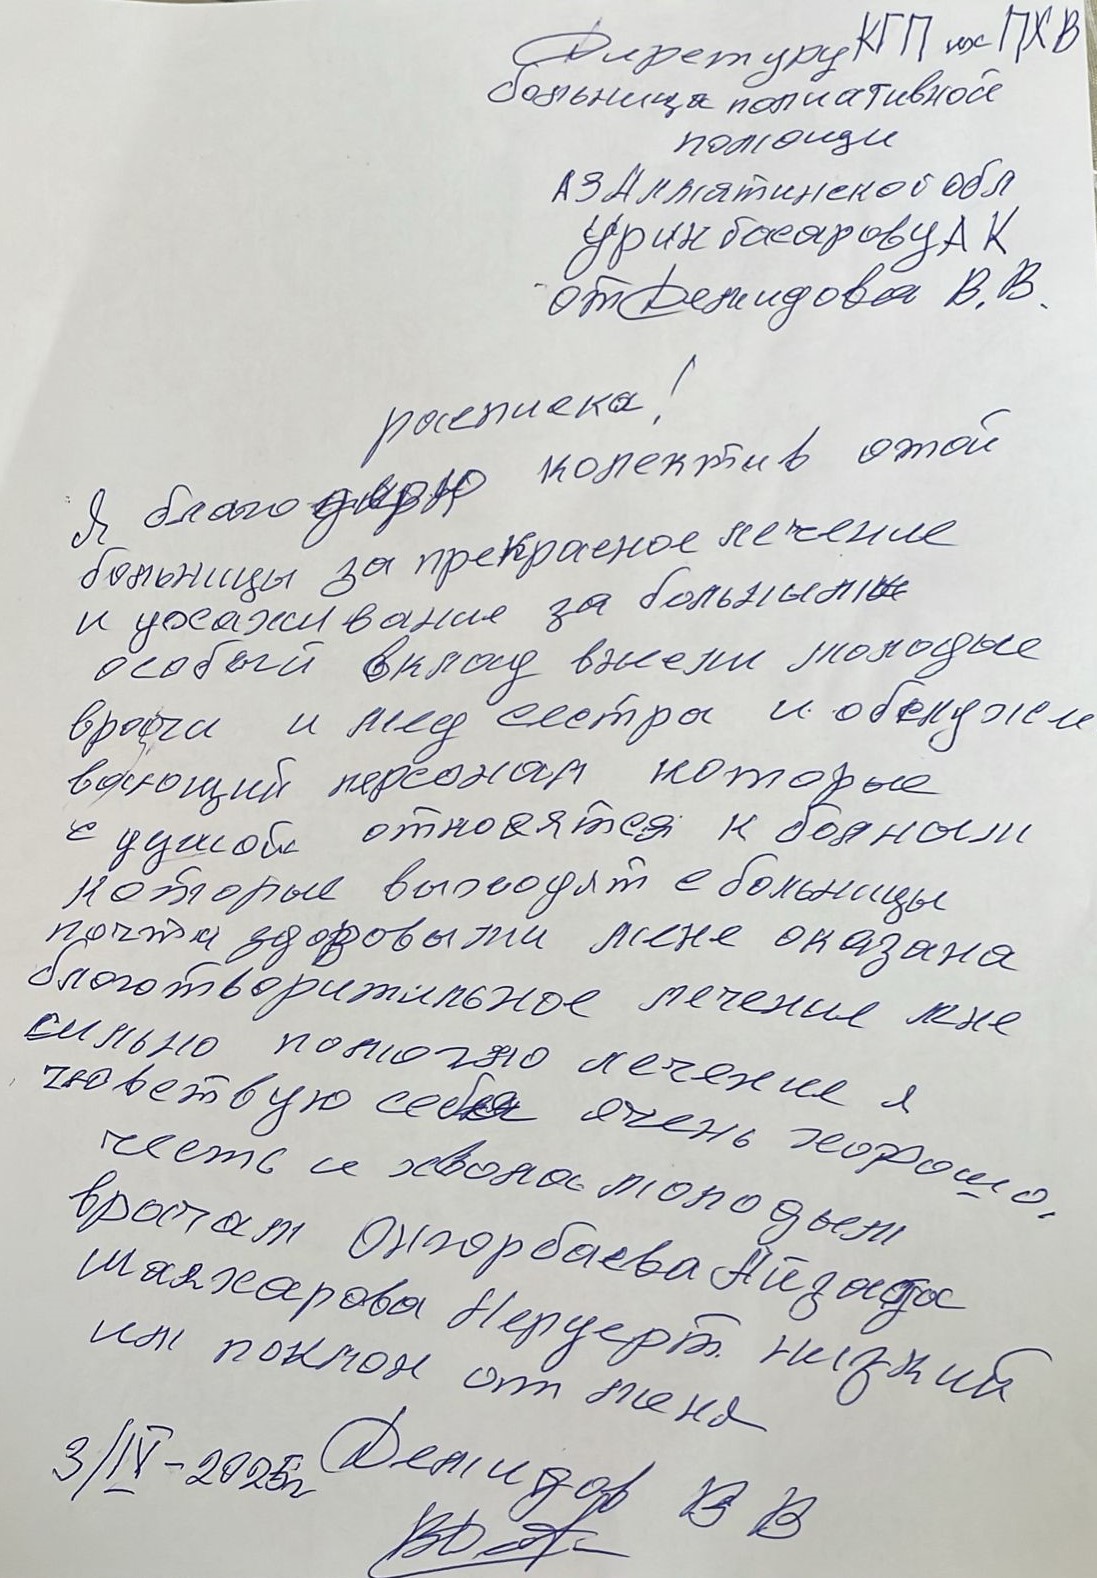 Диретуру КГП на ПХВ
больница полиативной
помощи
АЗ Алматинской обл
Уринбасарову А К
от Демидова В. В.
расписка!
Я благодарю колектив отой
больницы за прекрасное лечение
и ухаживание за больными
особый вклад внесли молодые
врачи и мед сестра и обслужи
вающий персонал которые
с душой относятся к бояным
которые выходят с больницы
почти здоровыми мене оказана
благотворительное лечение мне
сильно помогло лечение я
чювствую себя ячень хорошо.
честь и хвона молодым
врачам Онгорбаева Айзада
Шаяхарова Нерцерт. низкий
им поклон от меня
3/IV-2025г Демидов В В